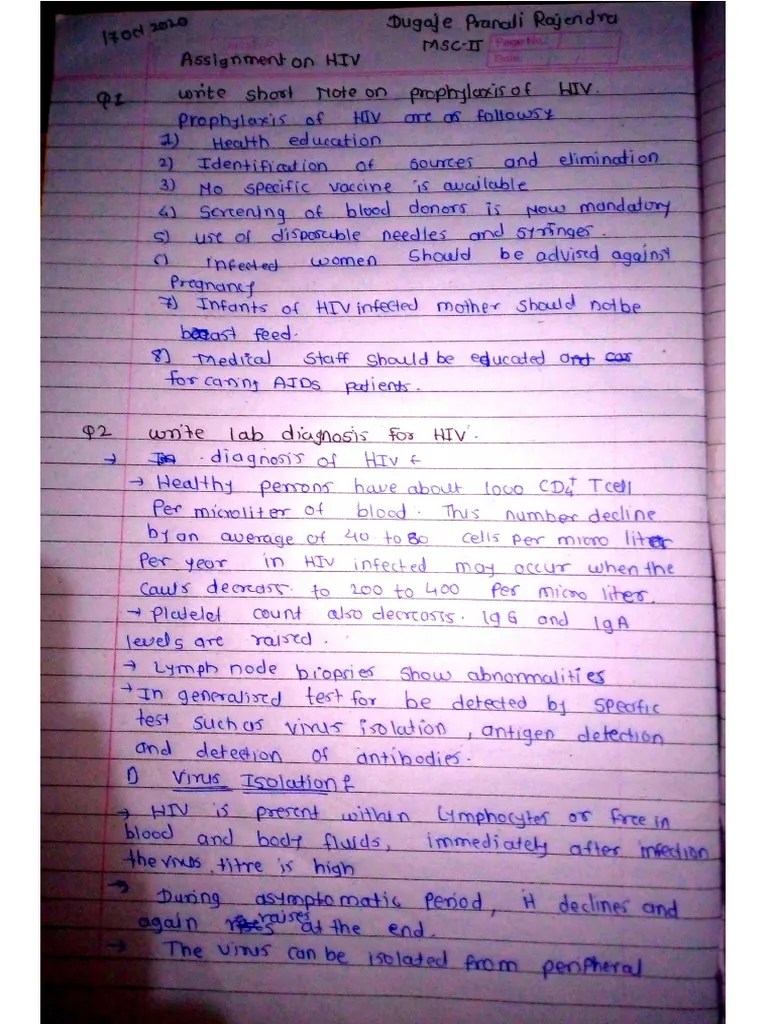 17 Oct 2020
Dugaje Pranali Rajendra
MSC-II
Page No.
Date
Assignment on HIV
Q1 write short Note on prophylaxis of HIV.
prophylaxis of HIV are as follows
1) Health education
2) Identification of sources and elimination
3) No specific vaccine is available
4) Screening of blood donors is Now mandatory
5) use of disposable needles and syringes.
6) Infected women should be advised against
Pregnancy
7) Infants of HIV infected mother should notbe
breast feed.
8) Medical staff should be educated
for caring AIDs patients.
Q2 write lab diagnosis for HIV.
→ diagnosis of HIV
→ Healthy persons have about 1000 CD4+ Tcell
Per microliter of blood. This number decline
by an average of 40 to 80 cells per micro liter
Per year in HIV infected may occur when the
decreas to 200 to 400 per micro liter.
→ Platelet count also decreasis. IgG and IgA
levels are raised.
→ Lymph node biopsies show abnormalities
→ In generalised test for be detected by specific
test such as virus isolation, antigen detection
and detection of antibodies.
1) Virus Isolation
→ HIV is present within Lymphocytes or free in
blood and body fluids, immediately after infection
the virus titre is high
→ During asymptomatic period, it declines and
again raises at the end.
→ The virus can be isolated from peripheral